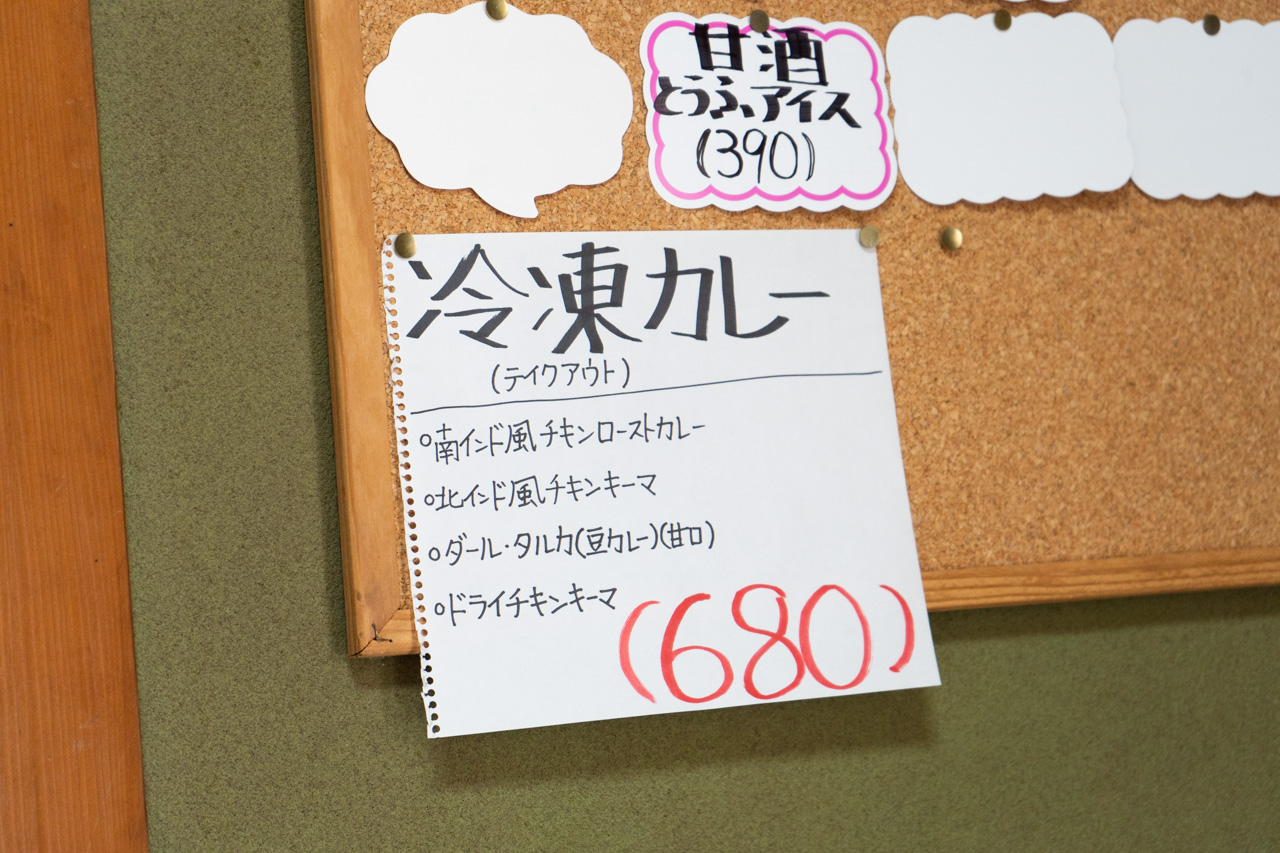 甘酒
とうふアイス
(390)
冷凍カレー
(テイクアウト)
○南インド風チキンローストカレー
○北インド風チキンキーマ
○ダール・タルカ(豆カレー)(甘口)
○ドライチキンキーマ
(680)